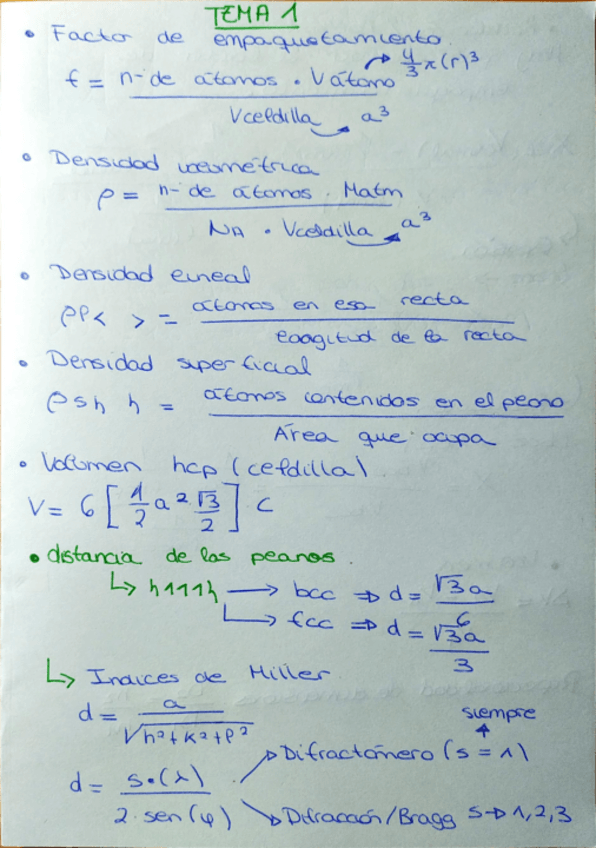 TEMA 1
• Factor de empaquetamiento.
f = nº de átomos · Vátomo → 4/3 π(r)³
Vceldilla → a³
• Densidad volumétrica
ρ = nº de átomos · Matm
NA · Vceldilla → a³
• Densidad lineal
ρl< > = átomos en esa recta
longitud de la recta
• Densidad superficial
ρs{ } = átomos contenidos en el plano
Área que ocupa
• Volumen hcp (celdilla)
V = 6 [ 1/2 a² √3/2 ] c
• distancia de los planos.
↳ {111} → bcc ⇒ d = √3a/6
↳ fcc ⇒ d = √3a/3
↳ Indices de Miller
d = a / √h²+k²+l²
siempre
d = s·(λ) / 2·sen(φ)
Difractómero (s = 1)
Difracción/Bragg s→1,2,3